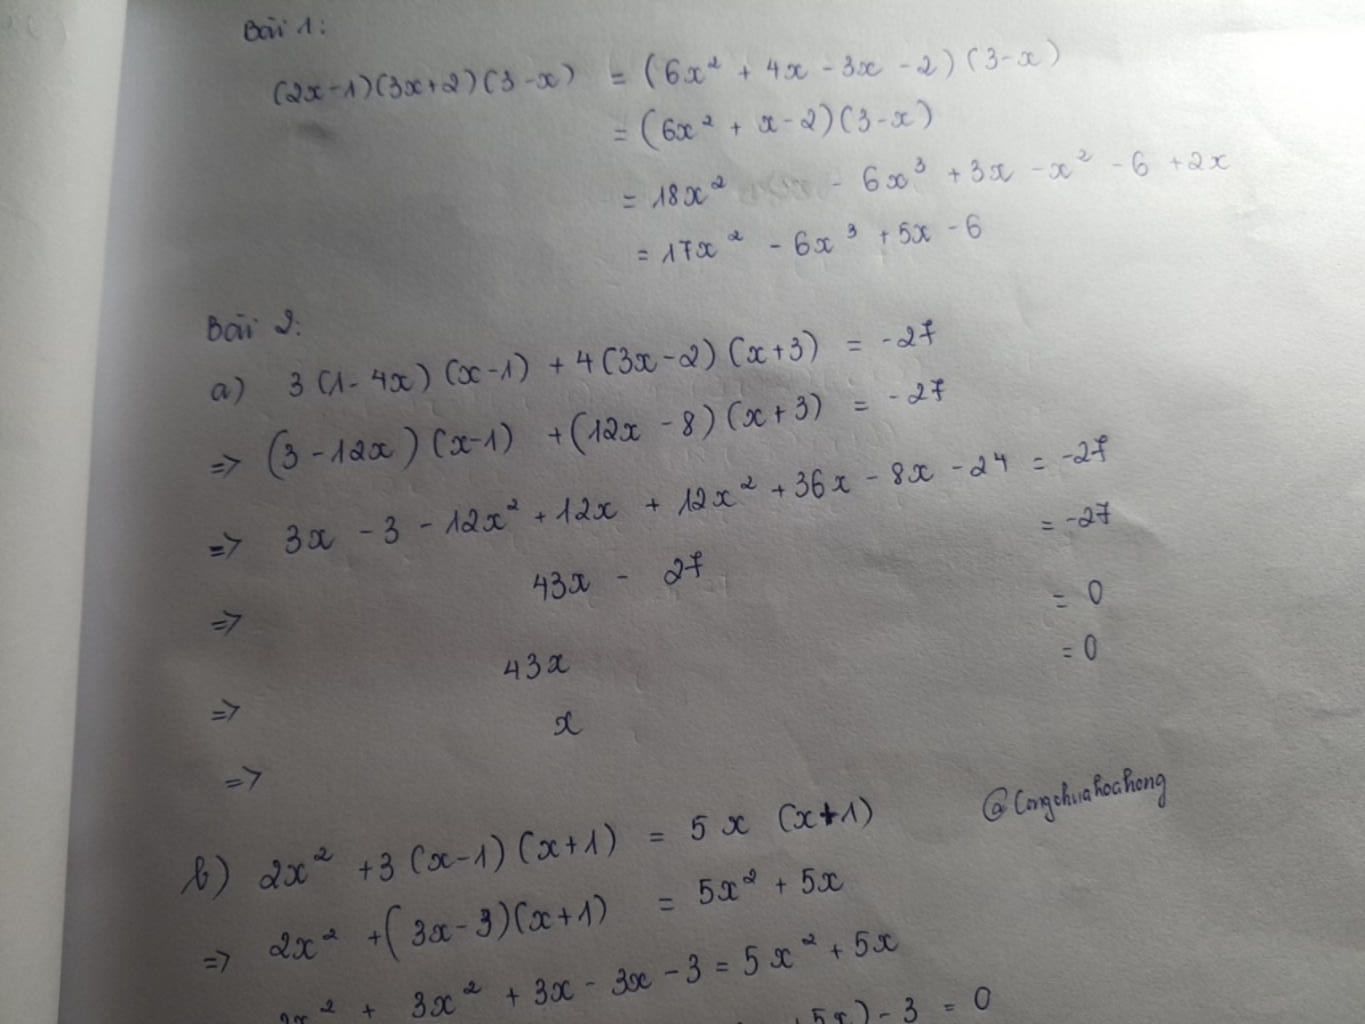 Bài 1:
(2x-1)(3x+2)(3-x) = (6x² + 4x - 3x - 2)(3-x)
= (6x² + x - 2)(3-x)
= 18x² - 6x³ + 3x - x² - 6 + 2x
= 17x² - 6x³ + 5x - 6
Bài 2:
a) 3(1-4x)(x-1) + 4(3x-2)(x+3) = -27
=> (3-12x)(x-1) + (12x-8)(x+3) = -27
=> 3x - 3 - 12x² + 12x + 12x² + 36x - 8x - 24 = -27
=> 43x - 27 = -27
=> 43x = 0
=> x = 0
@Congchuahoahong
b) 2x² + 3(x-1)(x+1) = 5x (x+1)
=> 2x² + (3x-3)(x+1) = 5x² + 5x
2x² + 3x² + 3x - 3x - 3 = 5x² + 5x
+ 5x) - 3 = 0